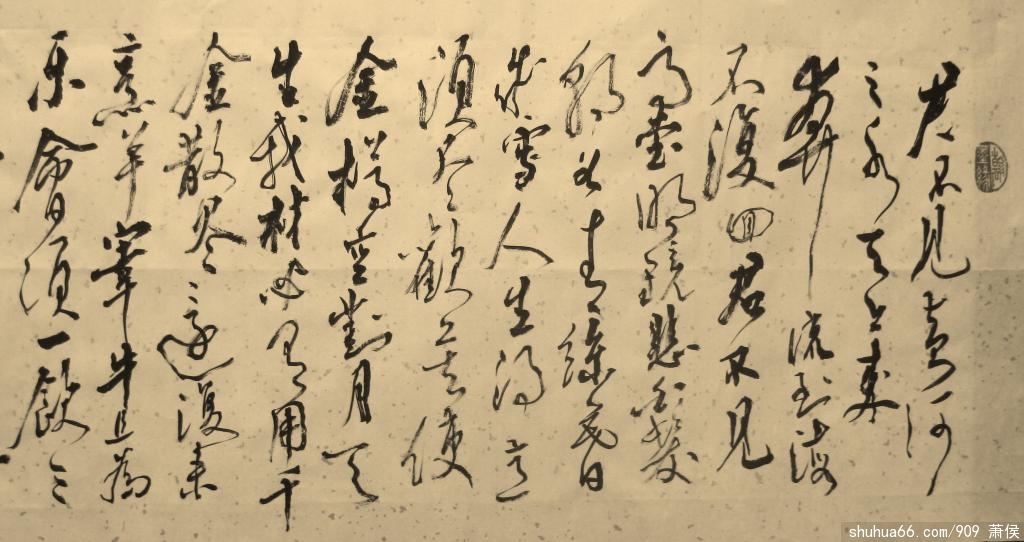 君不见黄河
之水天上来
奔流到海
不復回君不見
高堂明鏡悲白髮
朝如青絲暮
成雪人生得意
須尽歡莫使
金樽空對月天
生我材必有用千
金散尽還復来
烹羊宰牛且為
乐會須一飲三
shuhua66.com/909 萧侯